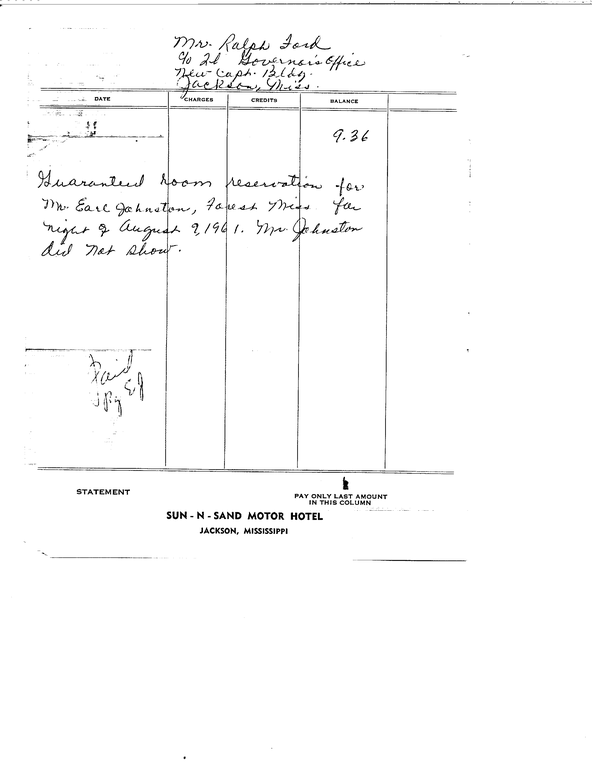 Mr. Ralph Ford
c/o Governor's Office
New Capt. Bldg.
Jackson, Miss.
DATE CHARGES CREDITS BALANCE
9.36
Guaranteed room reservation for
Mr. Earl Johnston, Forest Miss for
night of August 9, 1961. Mr Johnston
did not show.
Paid
By EJ
STATEMENT
PAY ONLY LAST AMOUNT
IN THIS COLUMN
SUN-N-SAND MOTOR HOTEL
JACKSON, MISSISSIPPI